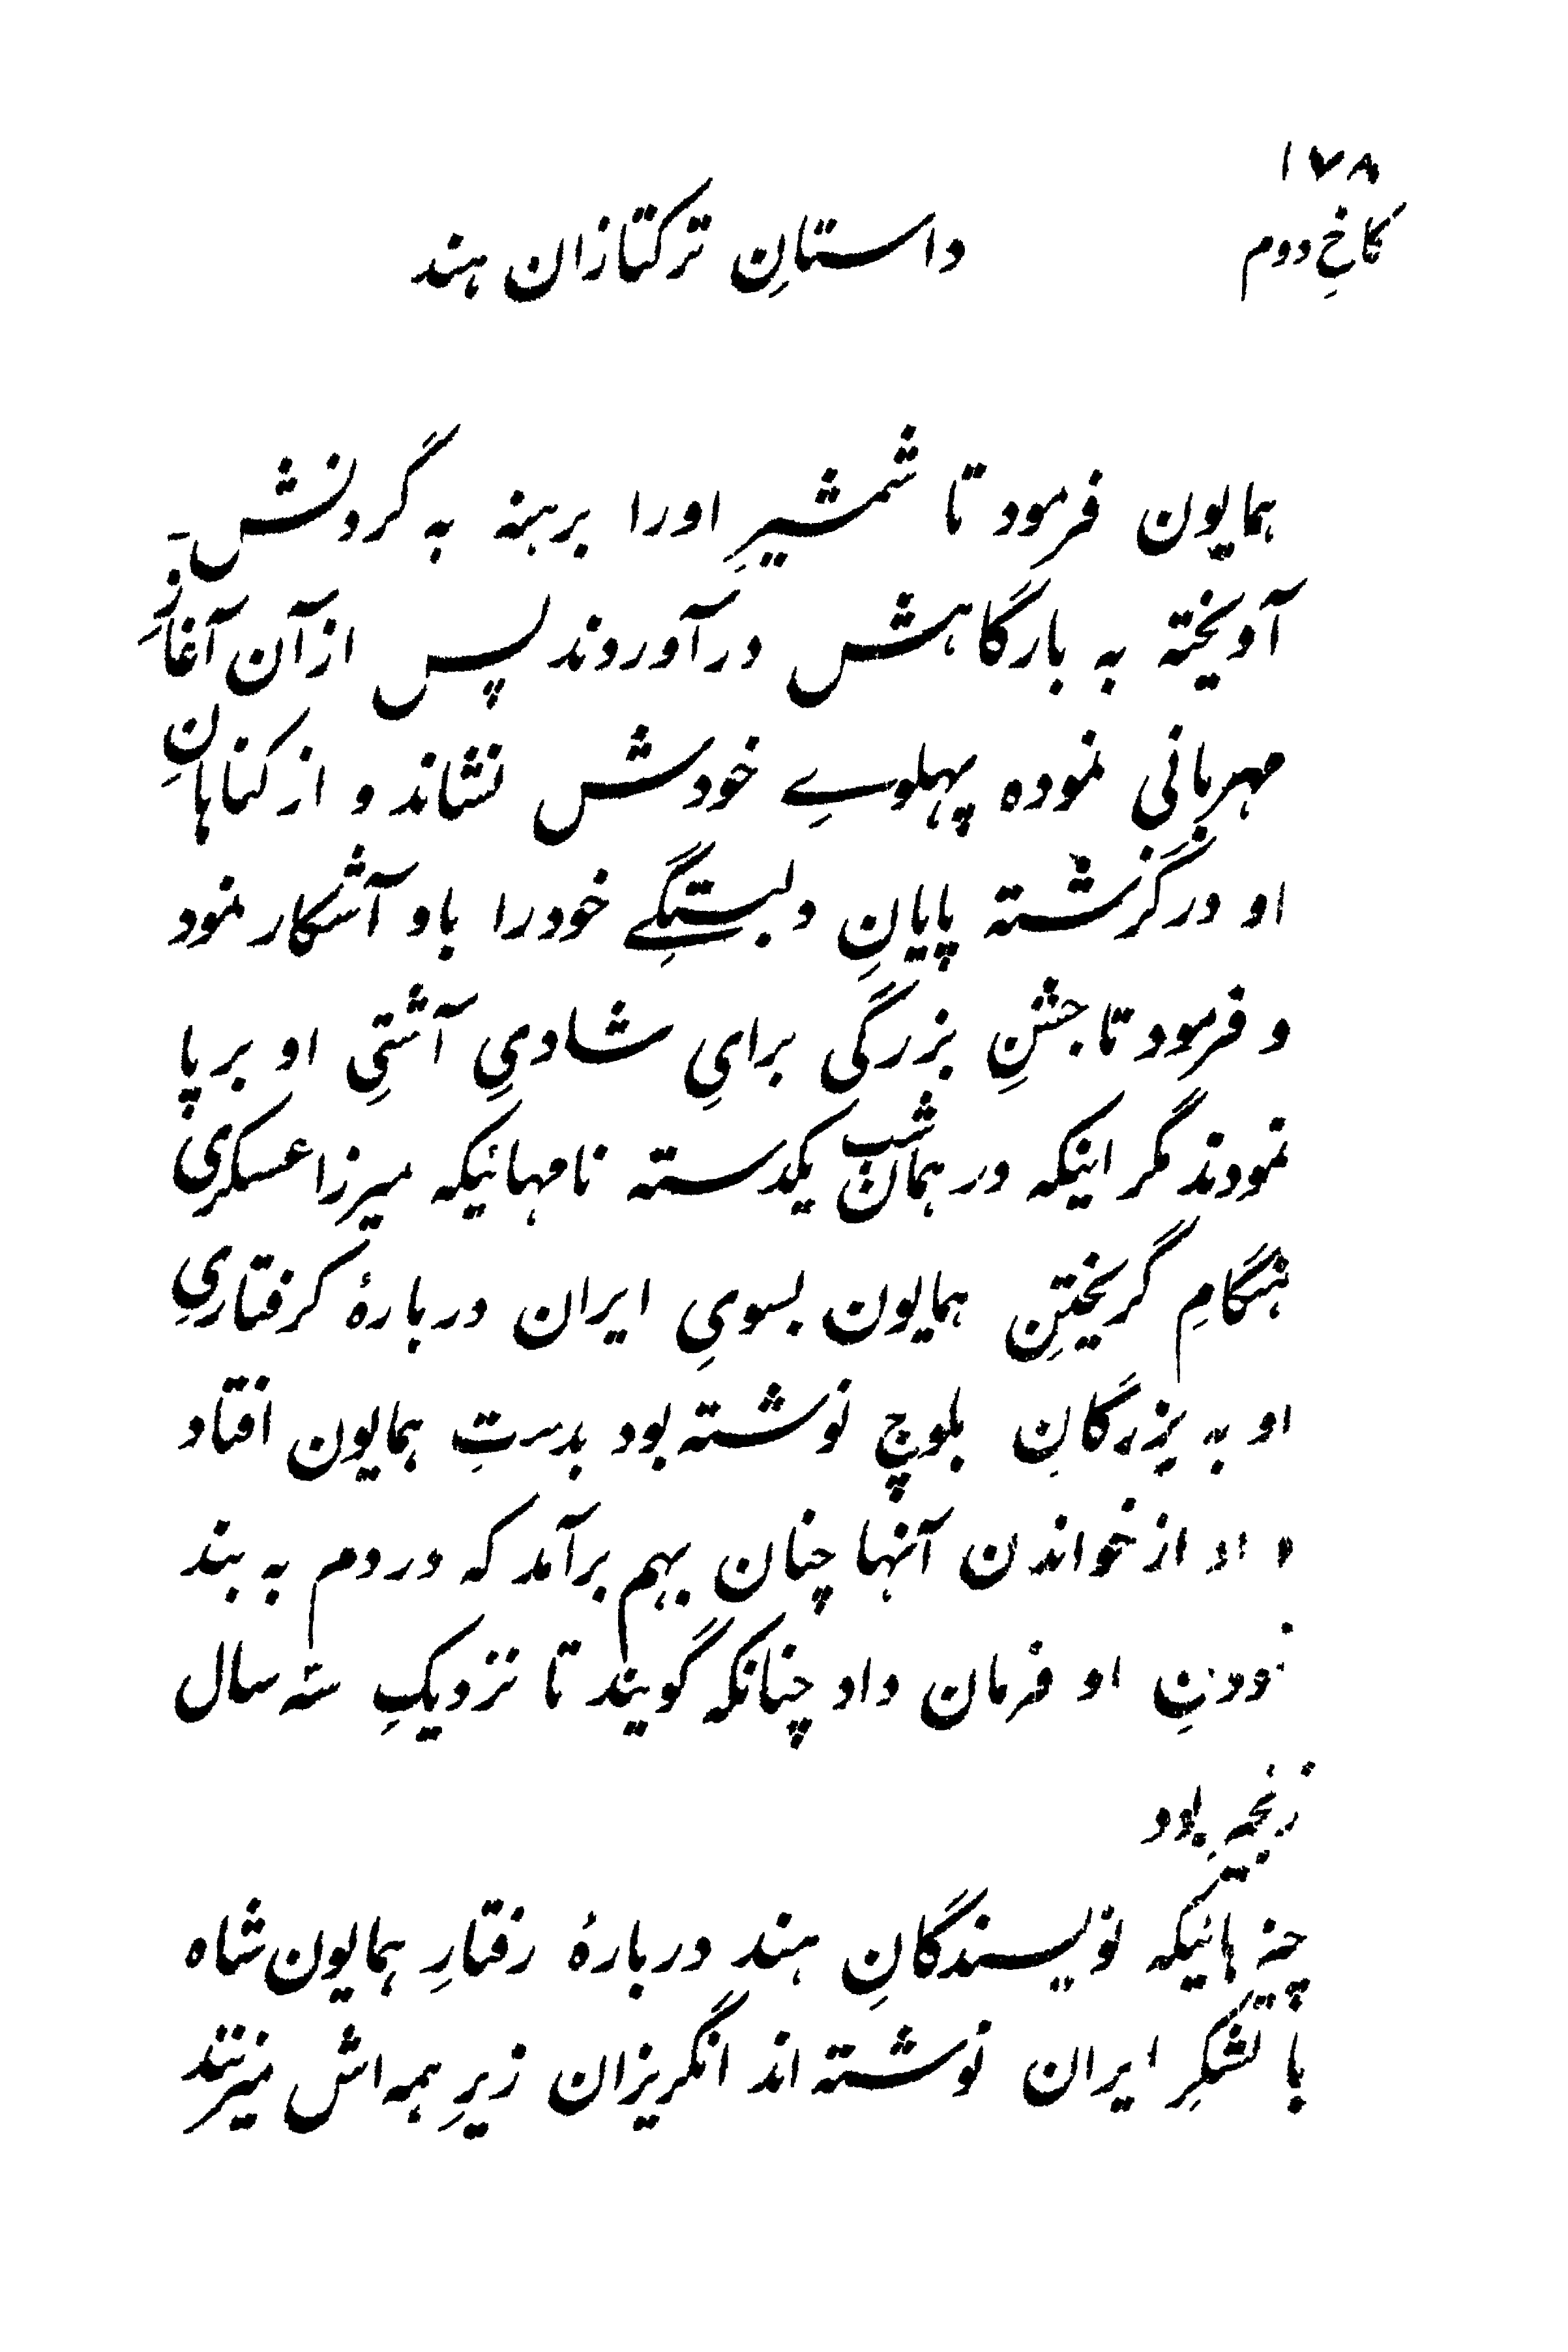 ۱۷۸
کاخِ دوم
داستانِ ترکتازان هند
همایون فرمود تا شمشیرِ اورا برهنه به گردنش
آویخته به بارگاهش درآوردند پس ازآن آغازِ
مهربانی نموده پهلوےِ خودش نشاند و از کناهانِ
او درگزشته پایانِ دلبستگےِ خودرا باو آشکار نمود
و فرمود تا جشنِ بزرگی برایِ شادیِ آشتیِ او برپا
نمودند مگر اینکه در همان شب یکدسته نامهائیکه میرزا عسکری
هنگامِ گریختنِ همایون بسویِ ایران دربارهٔ کرفتاریِ
او به بزرگانِ بلوچ نوشته بود بدستِ همایون افتاد
و او از خواندن آنها چنان بهم برآمد که در دم به بند
نمودنِ او فرمان داد چنانکه گویند تا نزدیکِ سه سال
زنجیر بود
چیزهائیکه نویسندگانِ هند دربارهٔ رفتارِ همایون شاه
با لشکرِ ایران نوشته اند انگریزان زیرِ همه اش میزنند